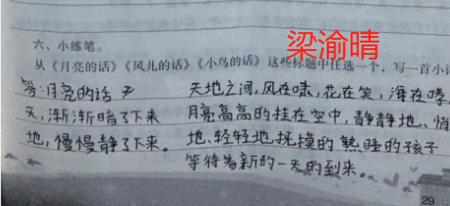 梁渝晴
六、小练笔。
从《月亮的话》《风儿的话》《小鸟的话》这些标题中任选一个，写一首小诗
答:月亮的话 天
天，渐渐暗了下来
地，慢慢静了下来。
天地之间，风在咏，花在笑，海在嗥
月亮高高的挂在空中，静静地、悄
地、轻轻地抚摸的熟睡的孩子
等待着新的一天的到来。
29